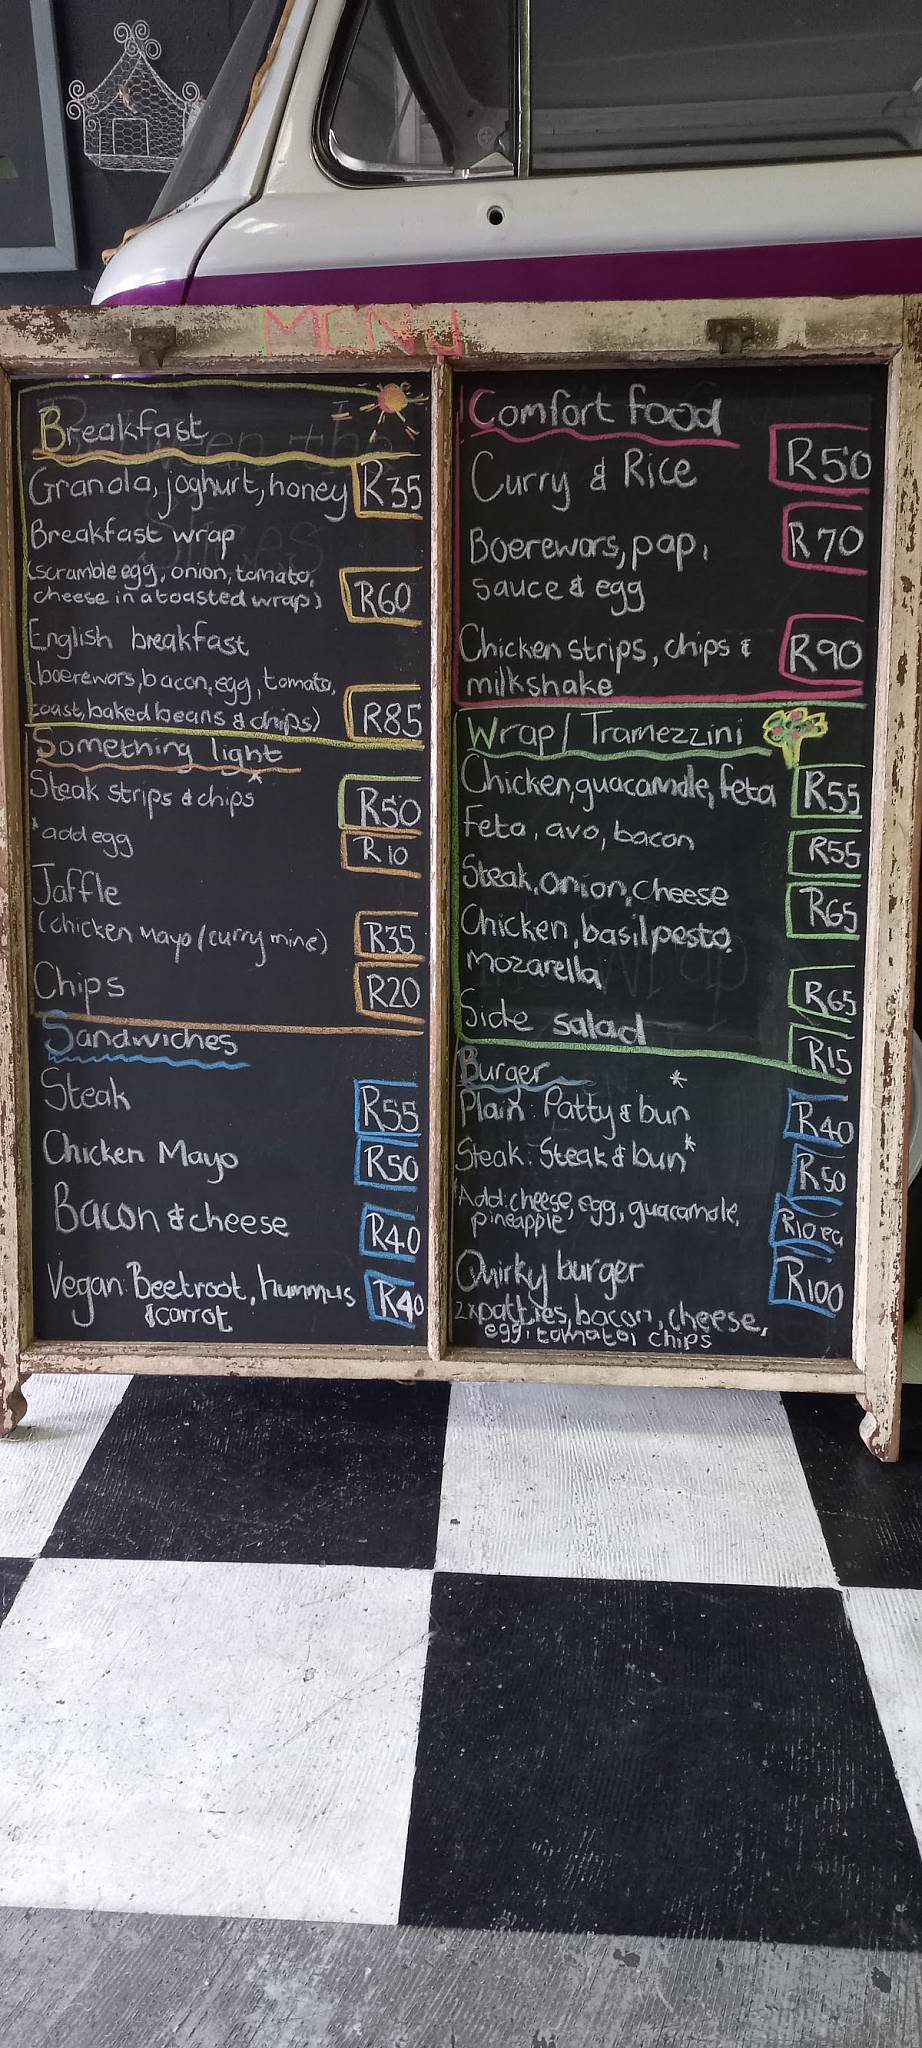 MENU
Breakfast
Granola, joghurt, honey R35
Breakfast wrap
(scramble egg, onion, tomato,
cheese in a toasted wrap) R60
English breakfast
(boerewors, bacon, egg, tomato,
toast, baked beans & chips) R85
Something light
Steak strips & chips* R50
*add egg R10
Jaffle
(chicken mayo/curry mine) R35
Chips R20
Sandwiches
Steak R55
Chicken Mayo R50
Bacon & cheese R40
Vegan: Beetroot, hummus R40
& carrot
Comfort food
Curry & Rice R50
Boerewors, pap, R70
sauce & egg
Chicken strips, chips & R90
milkshake
Wrap/Tramezzini
Chicken, guacamole, feta R55
Feta, avo, bacon R55
Steak, onion, cheese R65
Chicken, basil pesto,
mozarella R65
Side salad R15
Burger *
Plain: Patty & bun R40
Steak: Steak & bun* R50
*Add: cheese, egg, guacamole, R10 ea
pineapple
Quirky burger R100
2x patties, bacon, cheese,
egg, tomato, chips